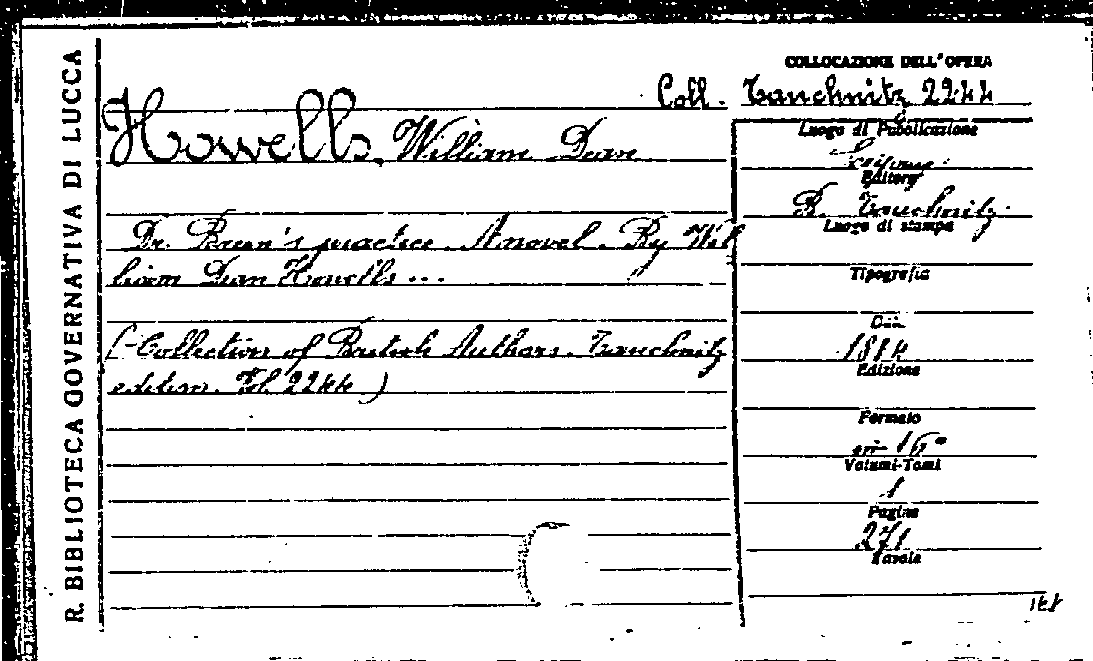 R. BIBLIOTECA GOVERNATIVA DI LUCCA
COLLOCAZIONE DELL'OPERA
Coll. Tauchnitz 2244
Howells, William Dean
Dr. Breen's practice. A novel. By Wil
liam Dean Howells ...
(-Collection of British Authors. Tauchnitz
edition. Vol. 2244)
Luogo di Pubblicazione
Editore
B. Tauchnitz.
Luogo di stampa
Tipografia
Data
Edizione
Formato
in 16°
Volumi-Tomi
1
Pagine
271
Tavole